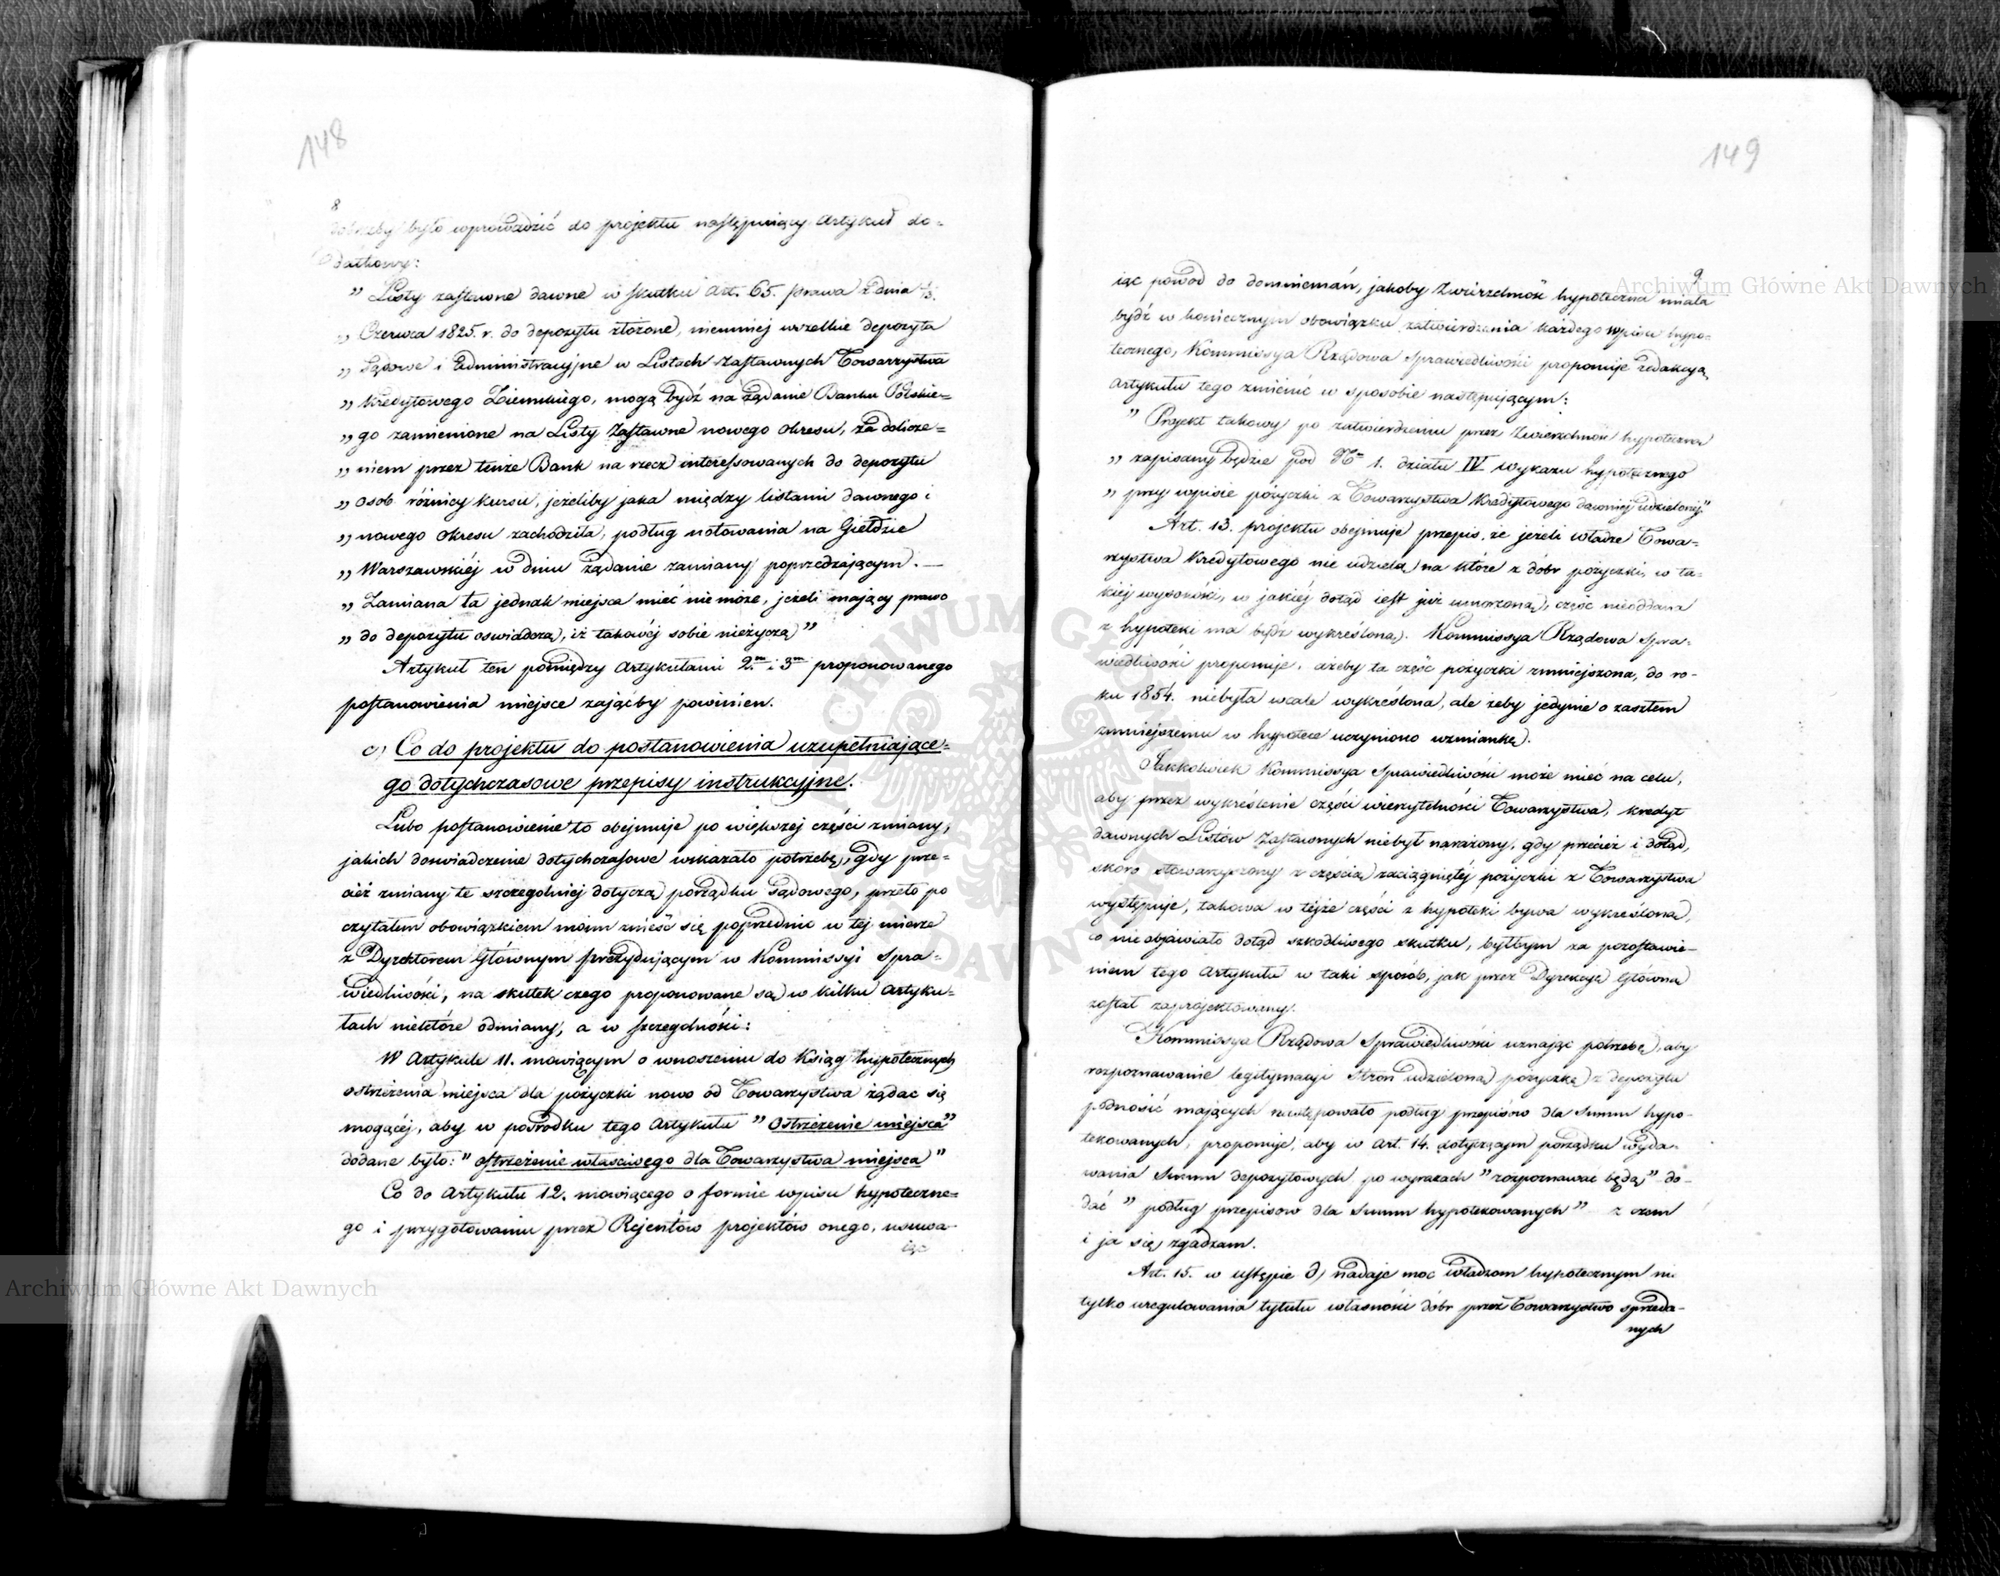 148
8
było wprowadzić do projektu następujący Artykuł do-
datkowy:
" Listy zastawne dawne w skutku Art. 65. prawa z dnia 1/13.
„ Czerwca 1825. r. do depozytu złożone, niemniej wszelkie depozyta
„ Sądowe i Administracyjne w Listach Zastawnych Towarzystwa
„ Kredytowego Ziemskiego, mogą bydź na żądanie Banku Polskie=
„ go zamienione na Listy Zastawne nowego okresu, za dolicze=
„ niem przez tenże Bank na rzecz interessowanych do depozytu
„ osob różnicy kursu, jeżeliby jaka między listami dawnego i
„ nowego okresu zachodziła, podług notowania na Giełdzie
„ Warszawskiéj w dniu żądanie zamiany poprzedzającym. —
„ Zamiana ta jednak miejsca mieć nie może, jeżeli mający prawo
„ do depozytu oświadczą, iż takowéj sobie nieżyczą"
Artykuł ten pomiędzy Artykułami 2m i 3m proponowanego
postanowienia miejsce zająćby powinien.
c) Co do projektu do postanowienia uzupełniające=
go dotychczasowe przepisy instrukcyjne.
Lubo postanowienie to obejmuje po większej części zmiany,
jakich doświadczenie dotychczasowe wskazało potrzebę, gdy prze=
cież zmiany te szczególniej dotyczą porządku Sądowego, przeto po
czytałem obowiązkiem moim znieść się poprzednio w tej mierze
z Dyrektorem Głównym prezydującym w Kommissyi Spra=
wiedliwości, na skutek czego proponowane są w kilku Artyku=
łach niektóre odmiany, a w szczególności:
W Artykule 11. mówiącym o wnoszeniu do Ksiąg hypotecznych
ostrzeżenia miejsca dla pożyczki nowo od Towarzystwa żądać się
mogącéj, aby w pośrodku tego Artykułu "Ostrzeżenie miejsca"
dodane było: "ostrzeżenie właściwego dla Towarzystwa miejsca"
Co do Artykułu 12. mówiącego o formie wpisu hypoteczne=
go i przygotowaniu przez Rejentów projektów onego, usuwa-
iąc
149
9
iąc powod do domniemań, jakoby Zwierzchność hypoteczna miała
bydź w koniecznym obowiązku zatwierdzenia każdego wpisu hypo-
tecznego, Kommissya Rządowa Sprawiedliwości proponuje redakcyą
Artykułu tego zmienić w sposobie następującym:
" Projekt takowy po zatwierdzeniu przez Zwierzchność hypoteczną
„ zapisany będzie pod No 1. działu IV wykazu hypotecznego
„ przy wpisie pożyczki z Towarzystwa Kredytowego dawniej udzielonej"
Art. 13. projektu obejmuje przepis, że jeżeli władze Towa=
rzystwa Kredytowego nie udzielą na które z dóbr pożyczki, w ta-
kiéj wysokości, w jakiéj dotąd iest już umorzoną, część nieoddana
z hypoteki ma bydź wykreśloną. Kommissya Rządowa Spra-
wiedliwości proponuje, ażeby ta część pożyczki zmniejszona, do ro-
ku 1854. niebyła wcale wykreślona, ale żeby jedynie o zaszłem
zmniejszeniu w hypotece uczyniono wzmiankę.
Jakkolwiek Kommissya Sprawiedliwości może mieć na celu,
aby przez wykreślenie części wierzytelności Towarzystwa, kredyt
dawnych Listów Zastawnych niebył narażony, gdy przecież i dotąd,
skoro stowarzyszony z częścią zaciągniętéj pożyczki z Towarzystwa
występuje, takowa w téjże części z hypoteki bywa wykreślona,
co nieobjawiało dotąd szkodliwego skutku, byłbym za pozostawie-
niem tego Artykułu w taki sposób, jak przez Dyrekcyę Główną
został zaprojektowany.
Kommissya Rządowa Sprawiedliwości uznając potrzebę, aby
rozpoznawanie legitymacyi Stron udzieloną pożyczkę z depozytu
podnosić mających następowało podług przepisów dla Summ hypo-
tekowanych, proponuje, aby w Art. 14. dotyczącym porządku wyda-
wania Summ depozytowych po wyrazach "rozpoznawać będą" do-
dać "podług przepisów dla Summ hypotekowanych" – z czem
i ja się zgadzam.
Art. 15. w ustępie d) nadaje moc władzom hypotecznym nie
tylko uregulowania tytułu własności dóbr przez Towarzystwo sprzeda-
nych
Archiwum Główne Akt Dawnych
Archiwum Główne Akt Dawnych